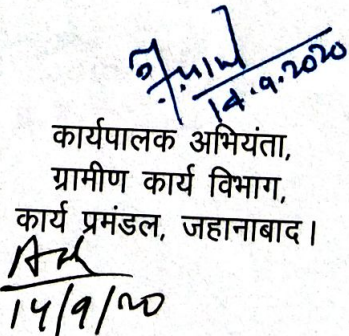 14.9.2020
कार्यपालक अभियंता,
ग्रामीण कार्य विभाग,
कार्य प्रमंडल, जहानाबाद।
14/9/20